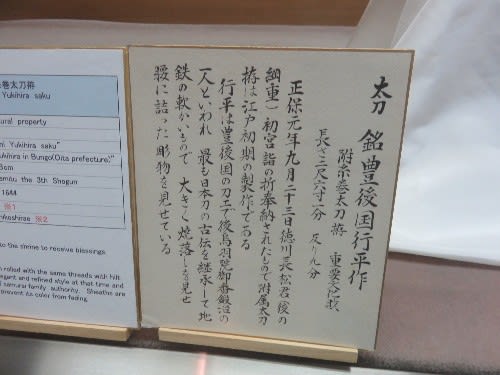 太刀 銘豊後国行平作
附糸巻太刀拵 重要文化財
長さ二尺六寸一分 反り九分
正保元年九月二十三日徳川長松君(後の
綱重)初宮詣の折奉納されたもので附属太刀
拵は江戸初期の製作である
行平は豊後国の刀工で後鳥羽院御番鍛冶の
一人といわれ 最も日本刀の古伝を継承して地
鉄の軟かいもので 大きく焼落しを見せ
腰に詰った彫物を見せている
糸巻太刀拵
Yukihira saku
ural property
ni Yukihira saku"
ukihira in Bungo(Oita prefecture)."
8cm
emou the 3th Shogun
1644
※1
nkoshirae ※2
to the shrine to receive blessings
n rolled with the same threads with hilt.
egant and refined style at that time and
l samurai family authority. Sheaths are
prevent its color from fading.